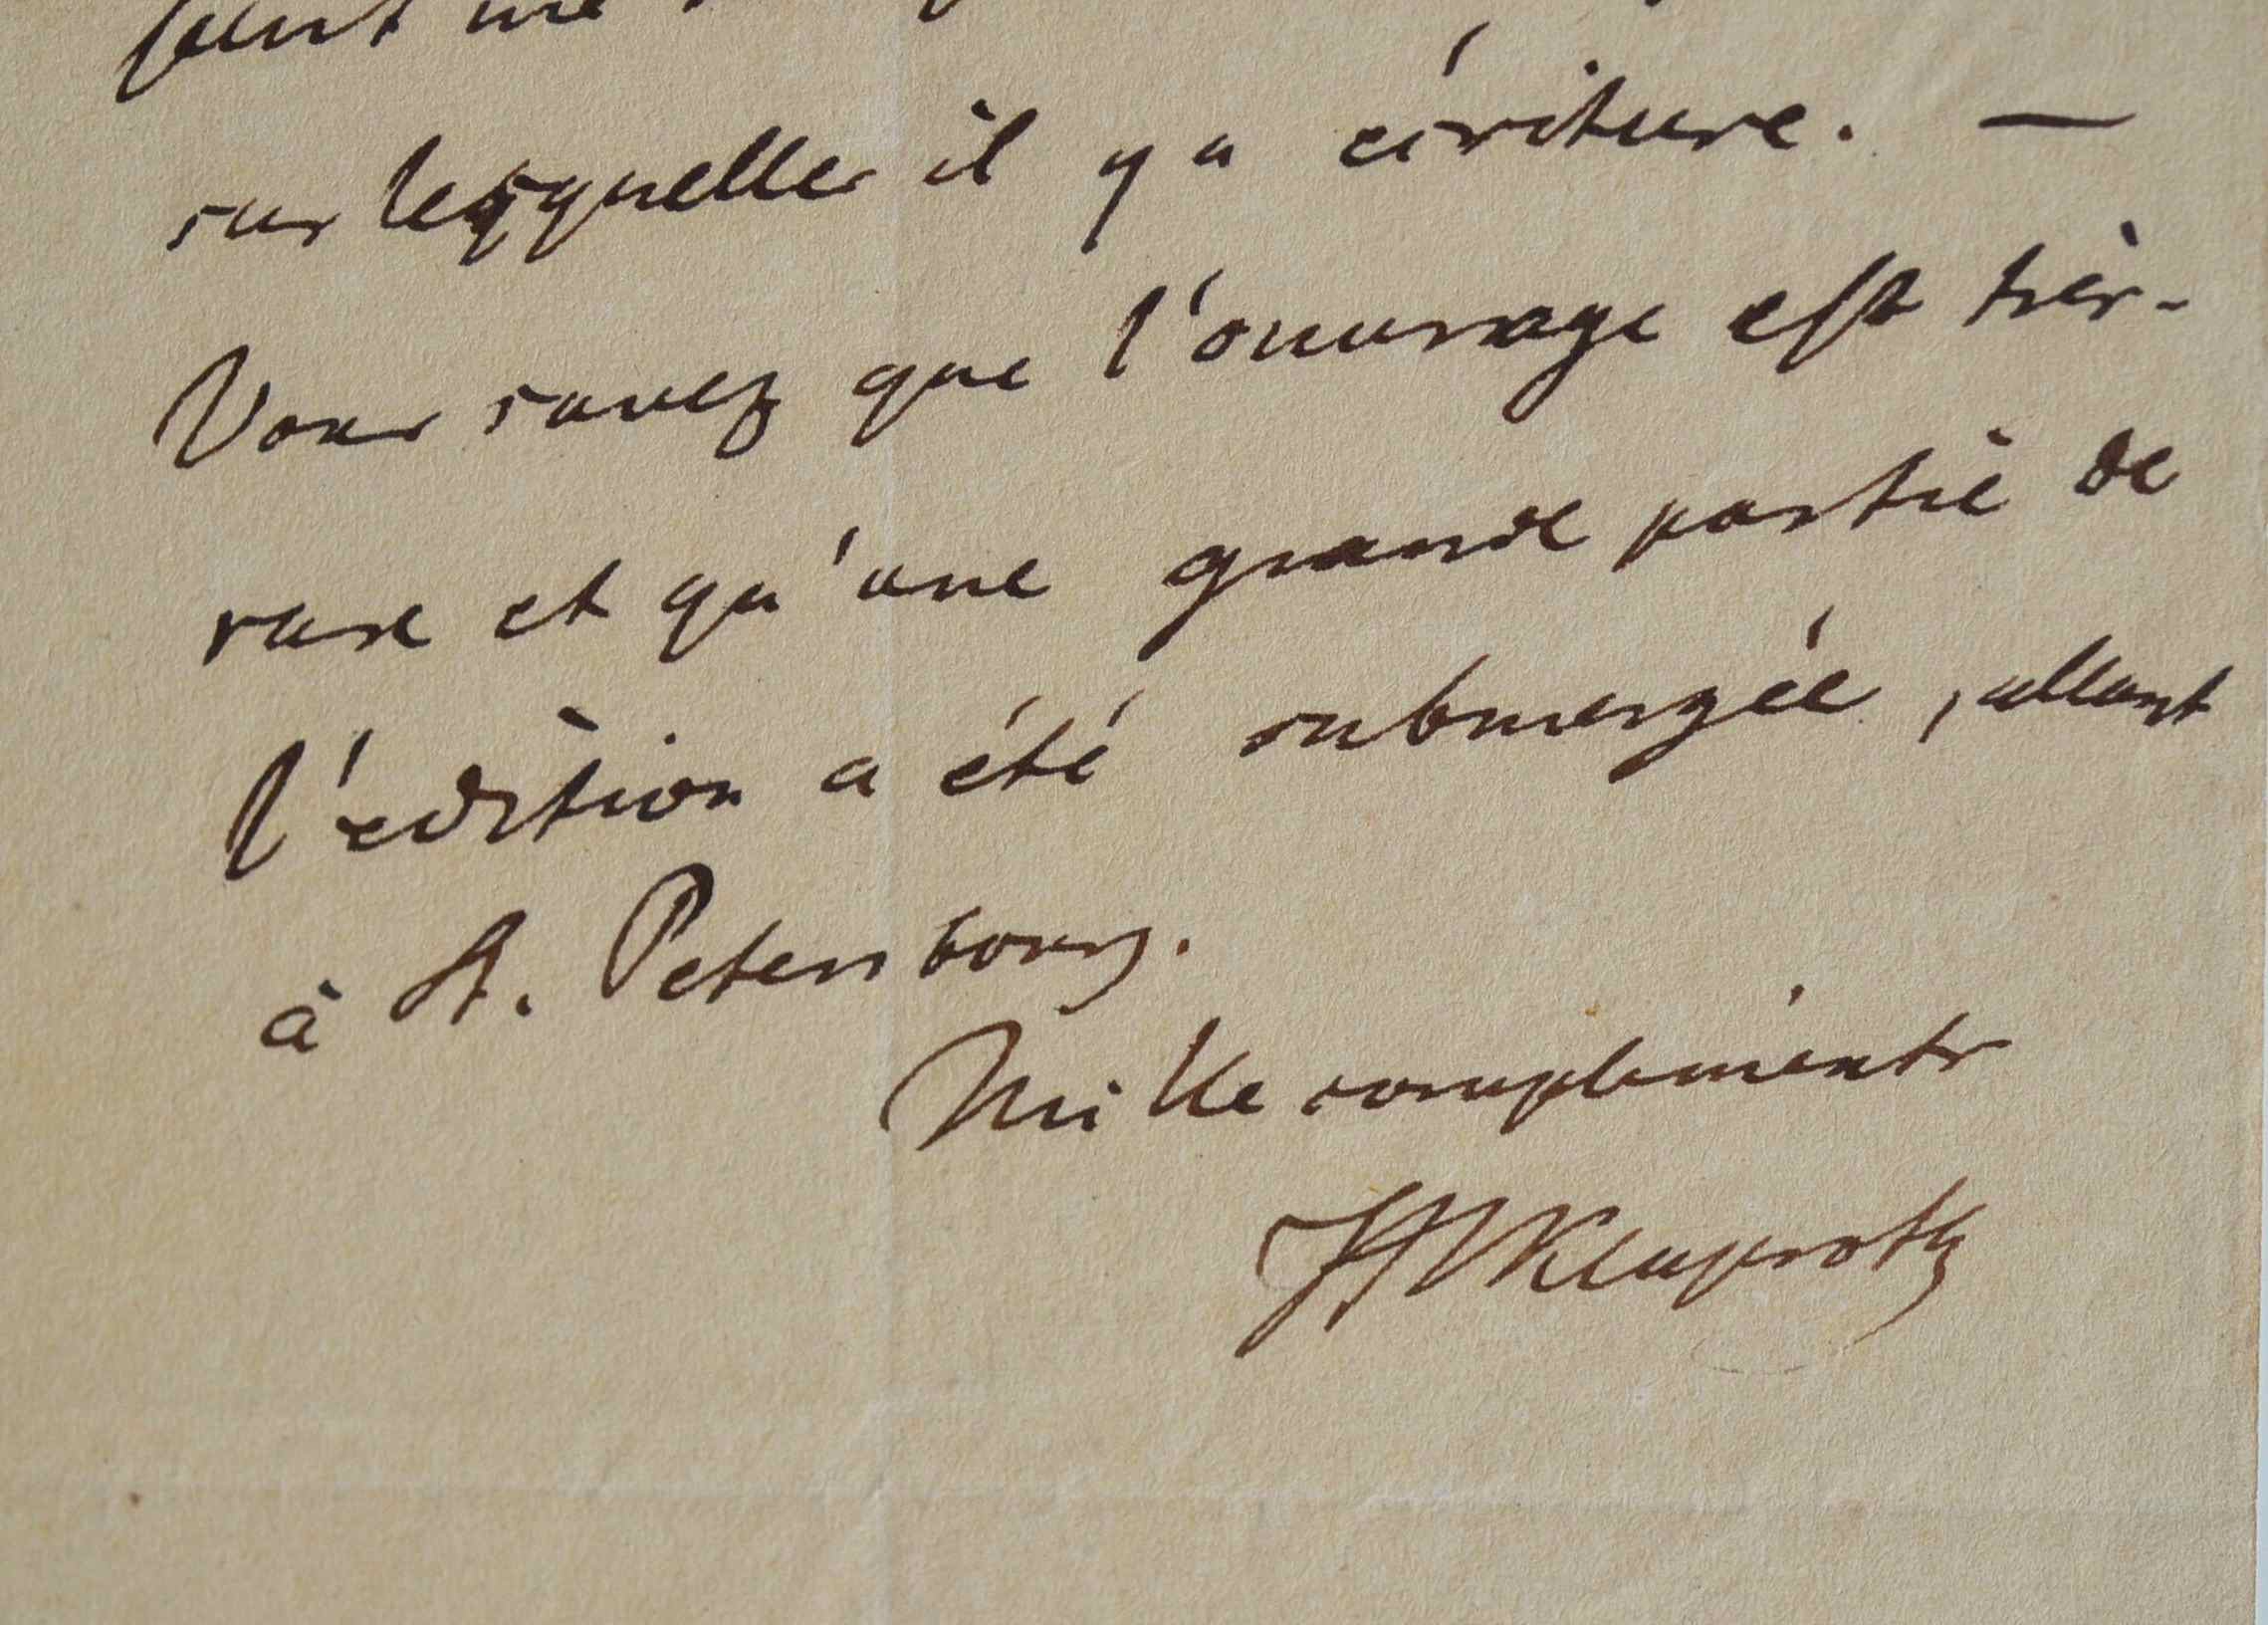 sur lesquelles il y a écriture. —
Vous savez que l'ouvrage est très-
rare et qu'une grande partie de
l'edition a été submergée, allant
à St. Petersbourg.
Mille compliments
Klaproth